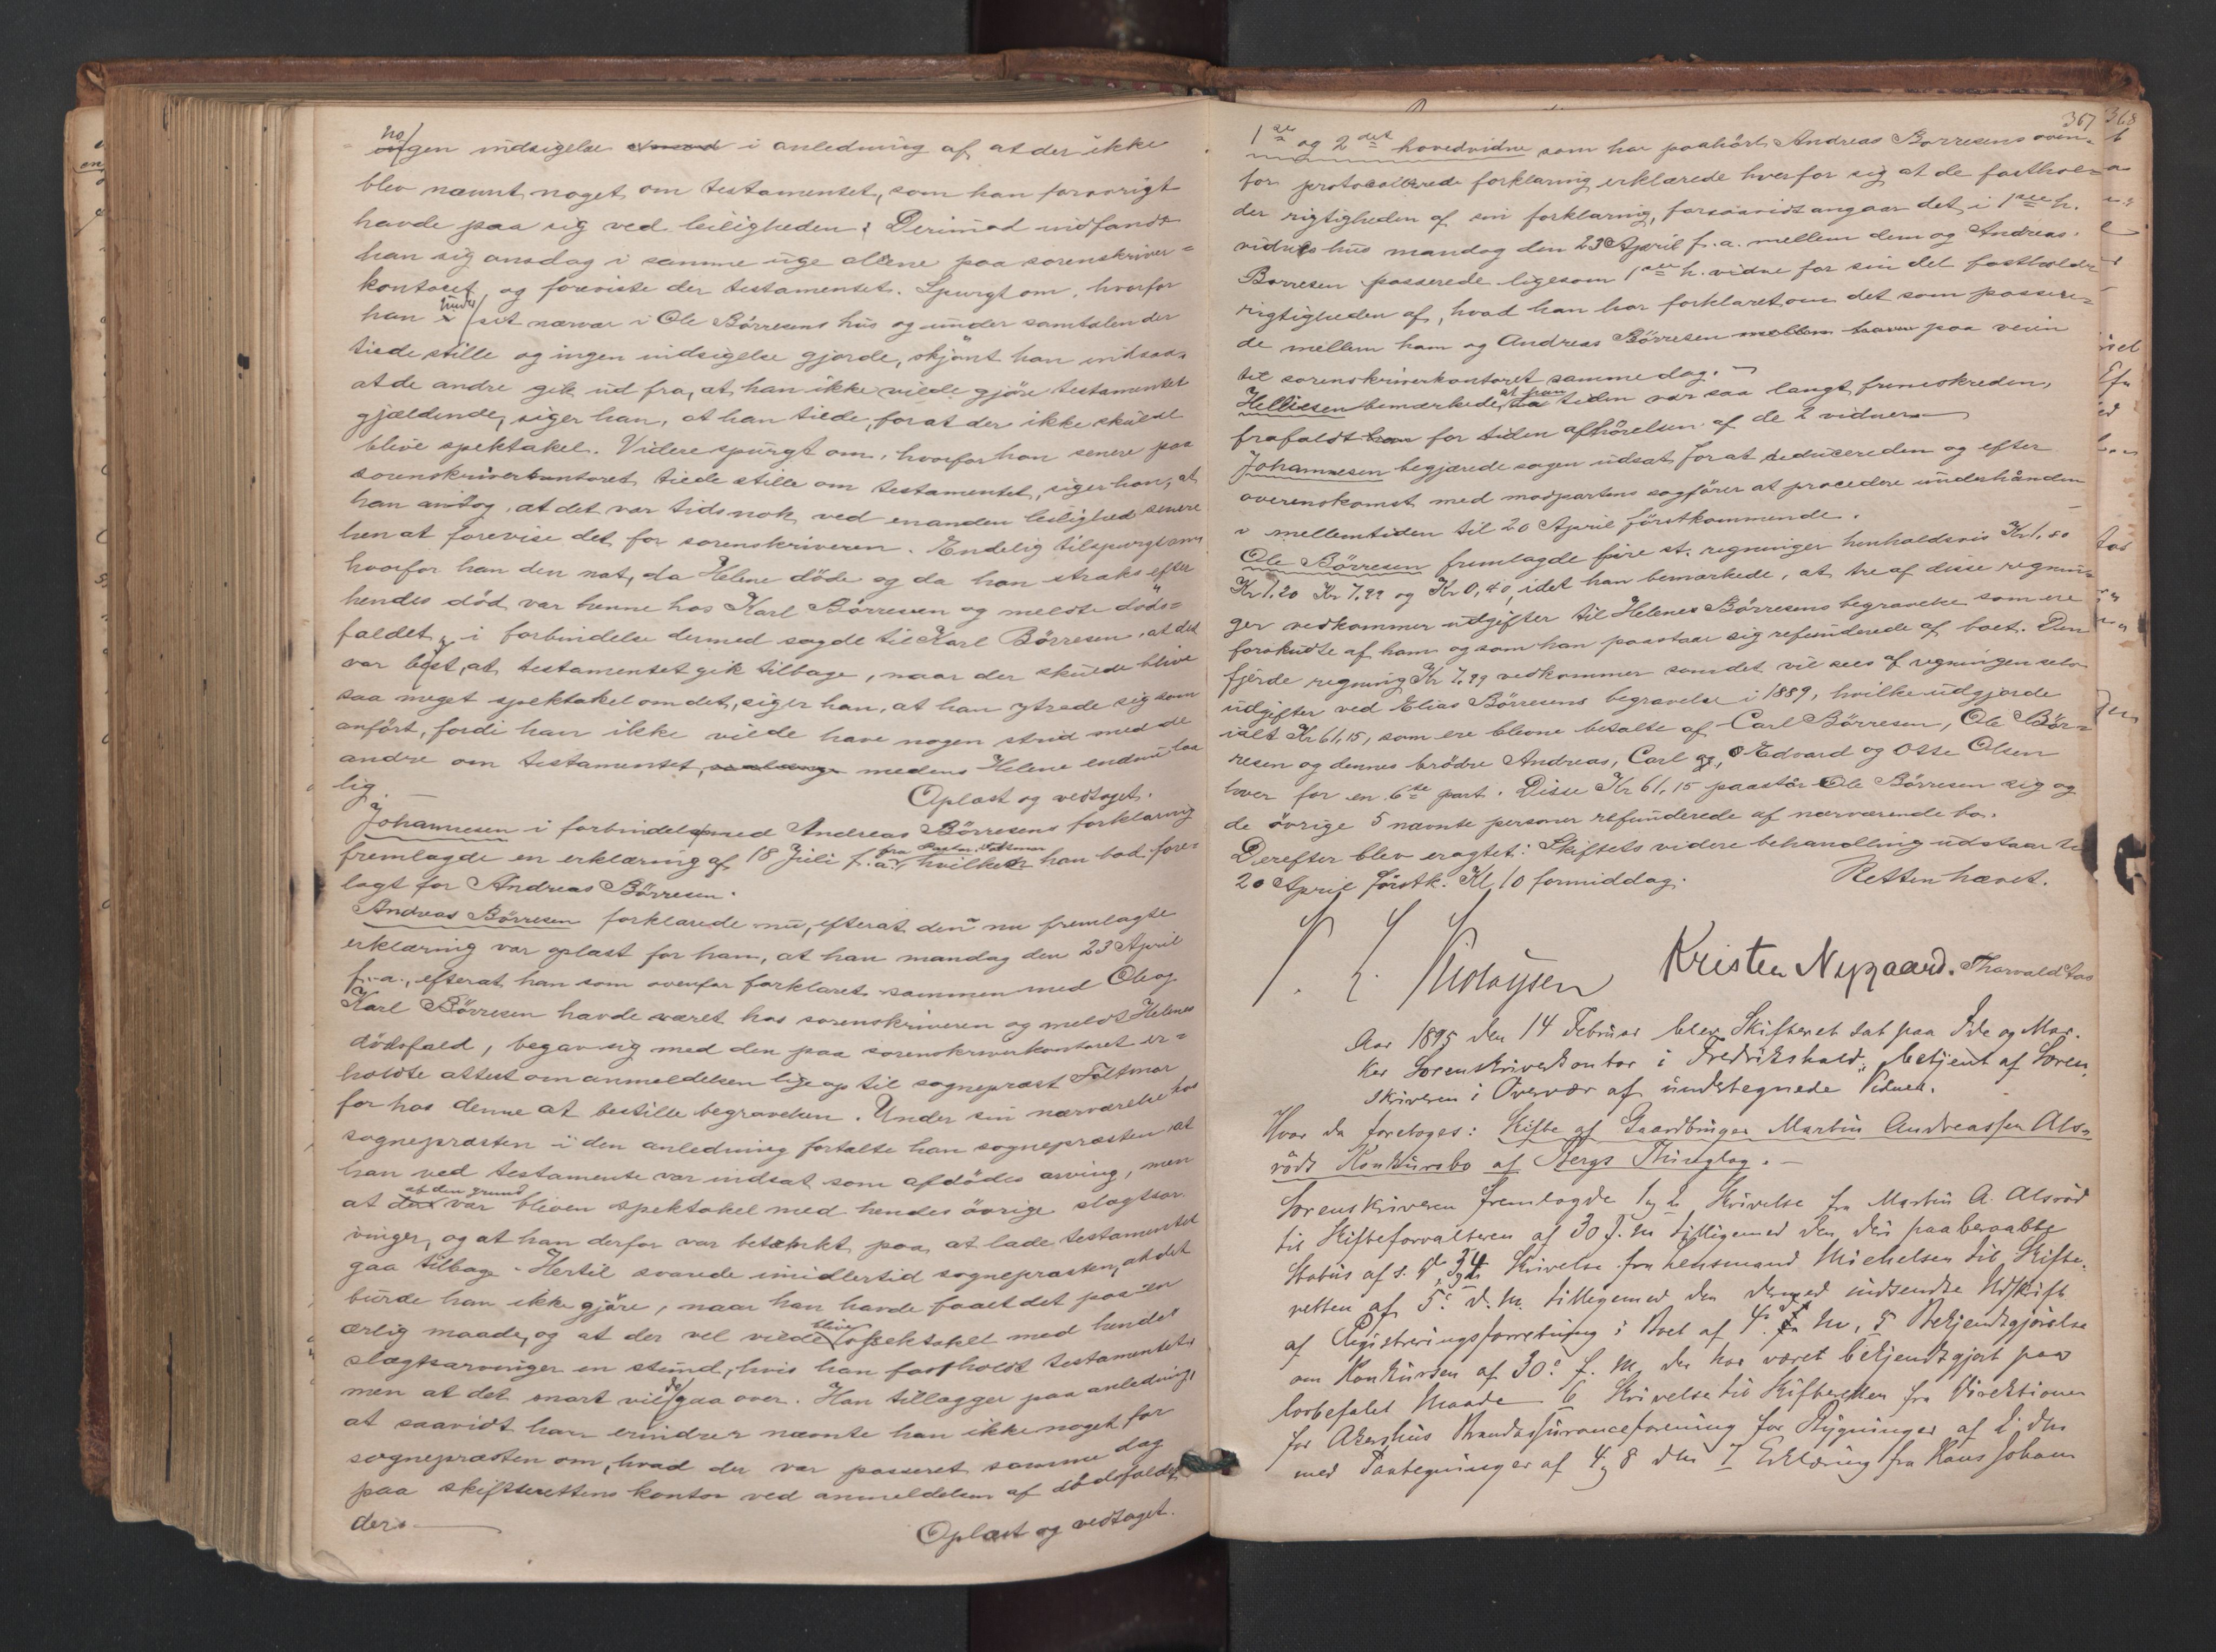 nogen indsigelse i anledning af at der ikke
blev nævnt noget om testamentet, som han forøvrigt
havde paa sig ved leiligheden. Derimod indfandt
han sig onsdag i samme uge alene paa sorenskriver=
kontoret og foreviste der testamentet. Spurgt om, hvorfor
han under sit nærvær i Ole Börresens hus og under samtalen der
tiede stille og ingen indsigelse gjorde, skjönt han indsaa,
at de andre gik ud fra, at han ikke vilde gjöre testamentet
gjældende, siger han, at han tiede, for at der ikke skulde
blive spektakel. Videre spurgt om, hvorfor han senere paa
sorenskriverkontoret tiede stille om testamentet, siger han, at
han antog, at det var tidsnok ved en anden leilighed senere
hen at forevise det for sorenskriveren. Endelig tilspurgt om
hvorfor han den nat, da Helene döde og da han straks efter
hendes död var henne hos Karl Börresen og meldte döds=
faldet, i forbindelse dermed sagde til Karl Börresen, at det
var bedst, at testamentet gik tilbage, naar der skulde blive
saa meget spektakel om det, siger han, at han ytrede sig som
anfört, fordi han ikke vilde have nogen strid med de
andre om testamentet, medens Helene endnu laa
lig. Oplæst og vedtaget.
Johannesen i forbindelse med Andreas Börresens forklaring
fremlagde en erklæring af 18 Juli f. a. fra Pastor Feltmar hvilken han bad fore=
lagt for Andreas Börresen.
Andreas Börresen forklarede nu, efterat den nu fremlagte
erklæring var oplæst for ham, at han mandag den 23 April
f. a., efterat han som ovenfor forklaret sammen med Ole og
Karl Börresen havde været hos sorenskriveren og meldt Helenes
dödsfald, begav sig med den paa sorenskriverkontoret er=
holdte attest om anmeldelsen lige op til sogneprest Feltmar
for hos denne at bestille begravelsen. Under sin nærværelse hos
sognepræsten i den anledning fortalte han sognepræsten at
han ved testamente var indsat som afdödes arving, men
at af den grund var bleven spektakel med hendes övrige slagtsar=
vinger, og at han derfor var betænkt paa at lade testamentet
gaa tilbage. Hertil svarede imidlertid sognepræsten, at det
burde han ikke gjöre, naar han havde faaet det paa en
ærlig maade, og at der vel vilde blive spektakel med hendes
slagtsarvinger en stund, hvis han fastholdt testamentet,
men at det snart vilde gaa over. Han tillægger paa anledning,
at saavidt han erindrer nævnte han ikke noget for
sognepræsten om, hvad der var passeret samme dag
paa skifterettens kontor ved anmeldelsen af dödsfaldet
der. Oplæst og vedtaget.
367 368
1ste og 2det hovedvidne som har paahört Andreas Börresens oven=
for protocollerede forklaring erklærede hver for sig at de fasthol=
der rigtigheden af sin forklaring, forsaavidt angaar det i 1ste h.
vidnes hus mandag den 23 April f. a. mellem dem og Andreas
Börresen passerede ligesom 1ste h. vidne for sin del fastholder
rigtigheden af, hvad han har forklaret om det som passere=
de mellem ham og Andreas Börresen paa veien
til sorenskriverkontoret samme dag.
Helliesen bemærkede, at paa tiden var saa langt fremskreden,
frafaldt for tiden afhörelsen af de 2 vidner
Johannesen begjærede sagen udsat for at deducere den og efter
overenskomst med modpartens sagförer at procedere underhånden
i mellemtiden til 20 April förstkommende.
Ole Börresen fremlagde fire st. regninger henholdsvis Kr 1,80
Kr 1,20 Kr 7,99 og Kr 0,40, idet han bemærkede, at tre af disse regnin=
ger vedkommer udgifter til Helenes Börresens begravelse som ere
forskudte af ham og som han paastaar sig refunderede af boet. Den
fjerde regning Kr 7,99 vedkommer som det vil sees af regningen selv
udgifter ved Elias Börresens begravelse i 1889, hvilke udgjorde
ialt Kr 61,15, som ere blevne betalte af Carl Börresen, Ole Bör=
resen og dennes brödre Andreas, Carl og, Edvard og Otte Olsen
hver for en 6te part. Disse Kr 61,15 paastår Ole Börresen sig og
de övrige 5 nævnte personer refunderede af nærværende bo.
Derefter blev eragtet: Skiftets videre behandling udstaar til
20 April förstk. Kl. 10 formiddag. Retten hævet.
Kristen Nygaard. Thorvald
Aar 1895 den 14 Februar blev Skifteret sat paa Ide og Mar=
ker Sorenskriverkontor i Fredrikshald, betjent af Soren=
skriveren i Overvær af undertegnede Vidner.
Hvor da foretoges: Skifte af Gaardbruger Martin Andreassen Als=
röds Konkursbo af Bergs Thinglag.
Sorenskriveren fremlagde 1 og 2 Skrivelse fra Martin A. Alsröd
til Skifteforvalteren af 30 f. M. tilligemed den deri paaberaabte
Status af s. D., 3 og 4 Skrivelse fra Lensmand Michelsen til Skifte=
retten af 5. d. M. tilligemed den dermed indsendte Udskrift
af Registreringsforretning i Boet af 4. M, 5 Bekjendtgjørelse
om Konkursen af 30. f. M. der har været bekjendtgjort paa
lovbefalet Maade 6 Skrivelse til Skifteretten fra Direktionen
for Akershus Brandassuranceforening for Bygninger af 2 dns
med Paategninger af 4 og 8 dns 7 Erklæring fra Hans Johan